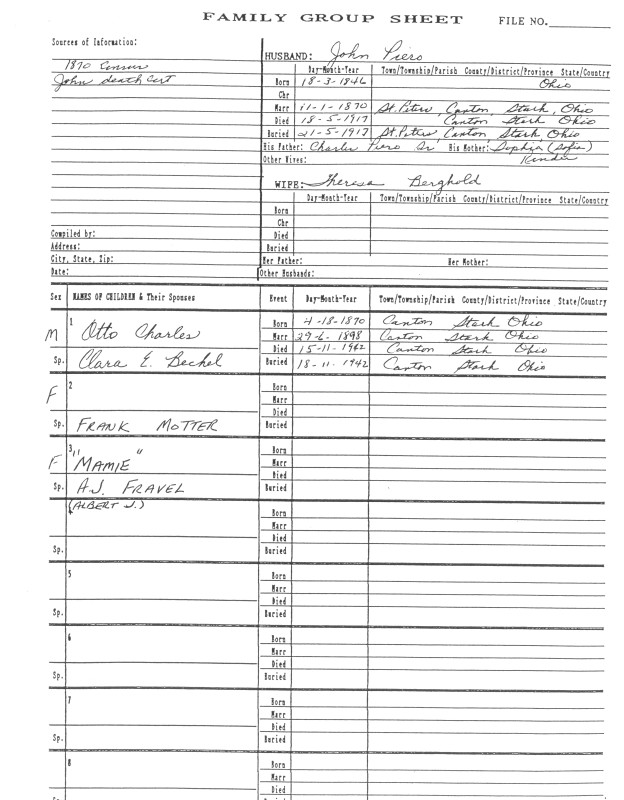 FAMILY GROUP SHEET FILE NO.
Sources of Information:
1870 Census
John death cert
HUSBAND: John Piero
Day-Month-Year Town/Township/Parish County/District/Province State/Country
Born 18-3-1846 Ohio
Chr
Marr 11-1-1870 St. Peters, Canton, Stark, Ohio
Died 18-5-1917 Canton Stark Ohio
Buried 21-5-1917 St. Peters Canton, Stark, Ohio
His Father: Charles Piero Sr His Mother: Sophia (Sofia)
Other Wives: Kinder
WIFE: Theresa Berghold
Day-Month-Year Town/Township/Parish County/District/Province State/Country
Born
Chr
Compiled by: Died
Address: Buried
City, State, Zip: Her Father: Her Mother:
Date: Other Husbands:
Sex NAMES OF CHILDREN & Their Spouses Event Day-Month-Year Town/Township/Parish County/District/Province State/Country
1 Born 4-18-1870 Canton Stark Ohio
M Otto Charles Marr 29-6-1898 Canton Stark Ohio
Died 15-11-1942 Canton Stark Ohio
Sp. Clara E. Bechel Buried 18-11-1942 Canton Stark Ohio
2 Born
F Marr
Died
Sp. FRANK MOTTER Buried
3 Born
F "MAMIE" Marr
Died
Sp. A.J. FRAVEL Buried
(ALBERT J.) Born
Marr
Died
Sp. Buried
5 Born
Marr
Died
Sp. Buried
6 Born
Marr
Died
Sp. Buried
7 Born
Marr
Died
Sp. Buried
8 Born
Marr
Died